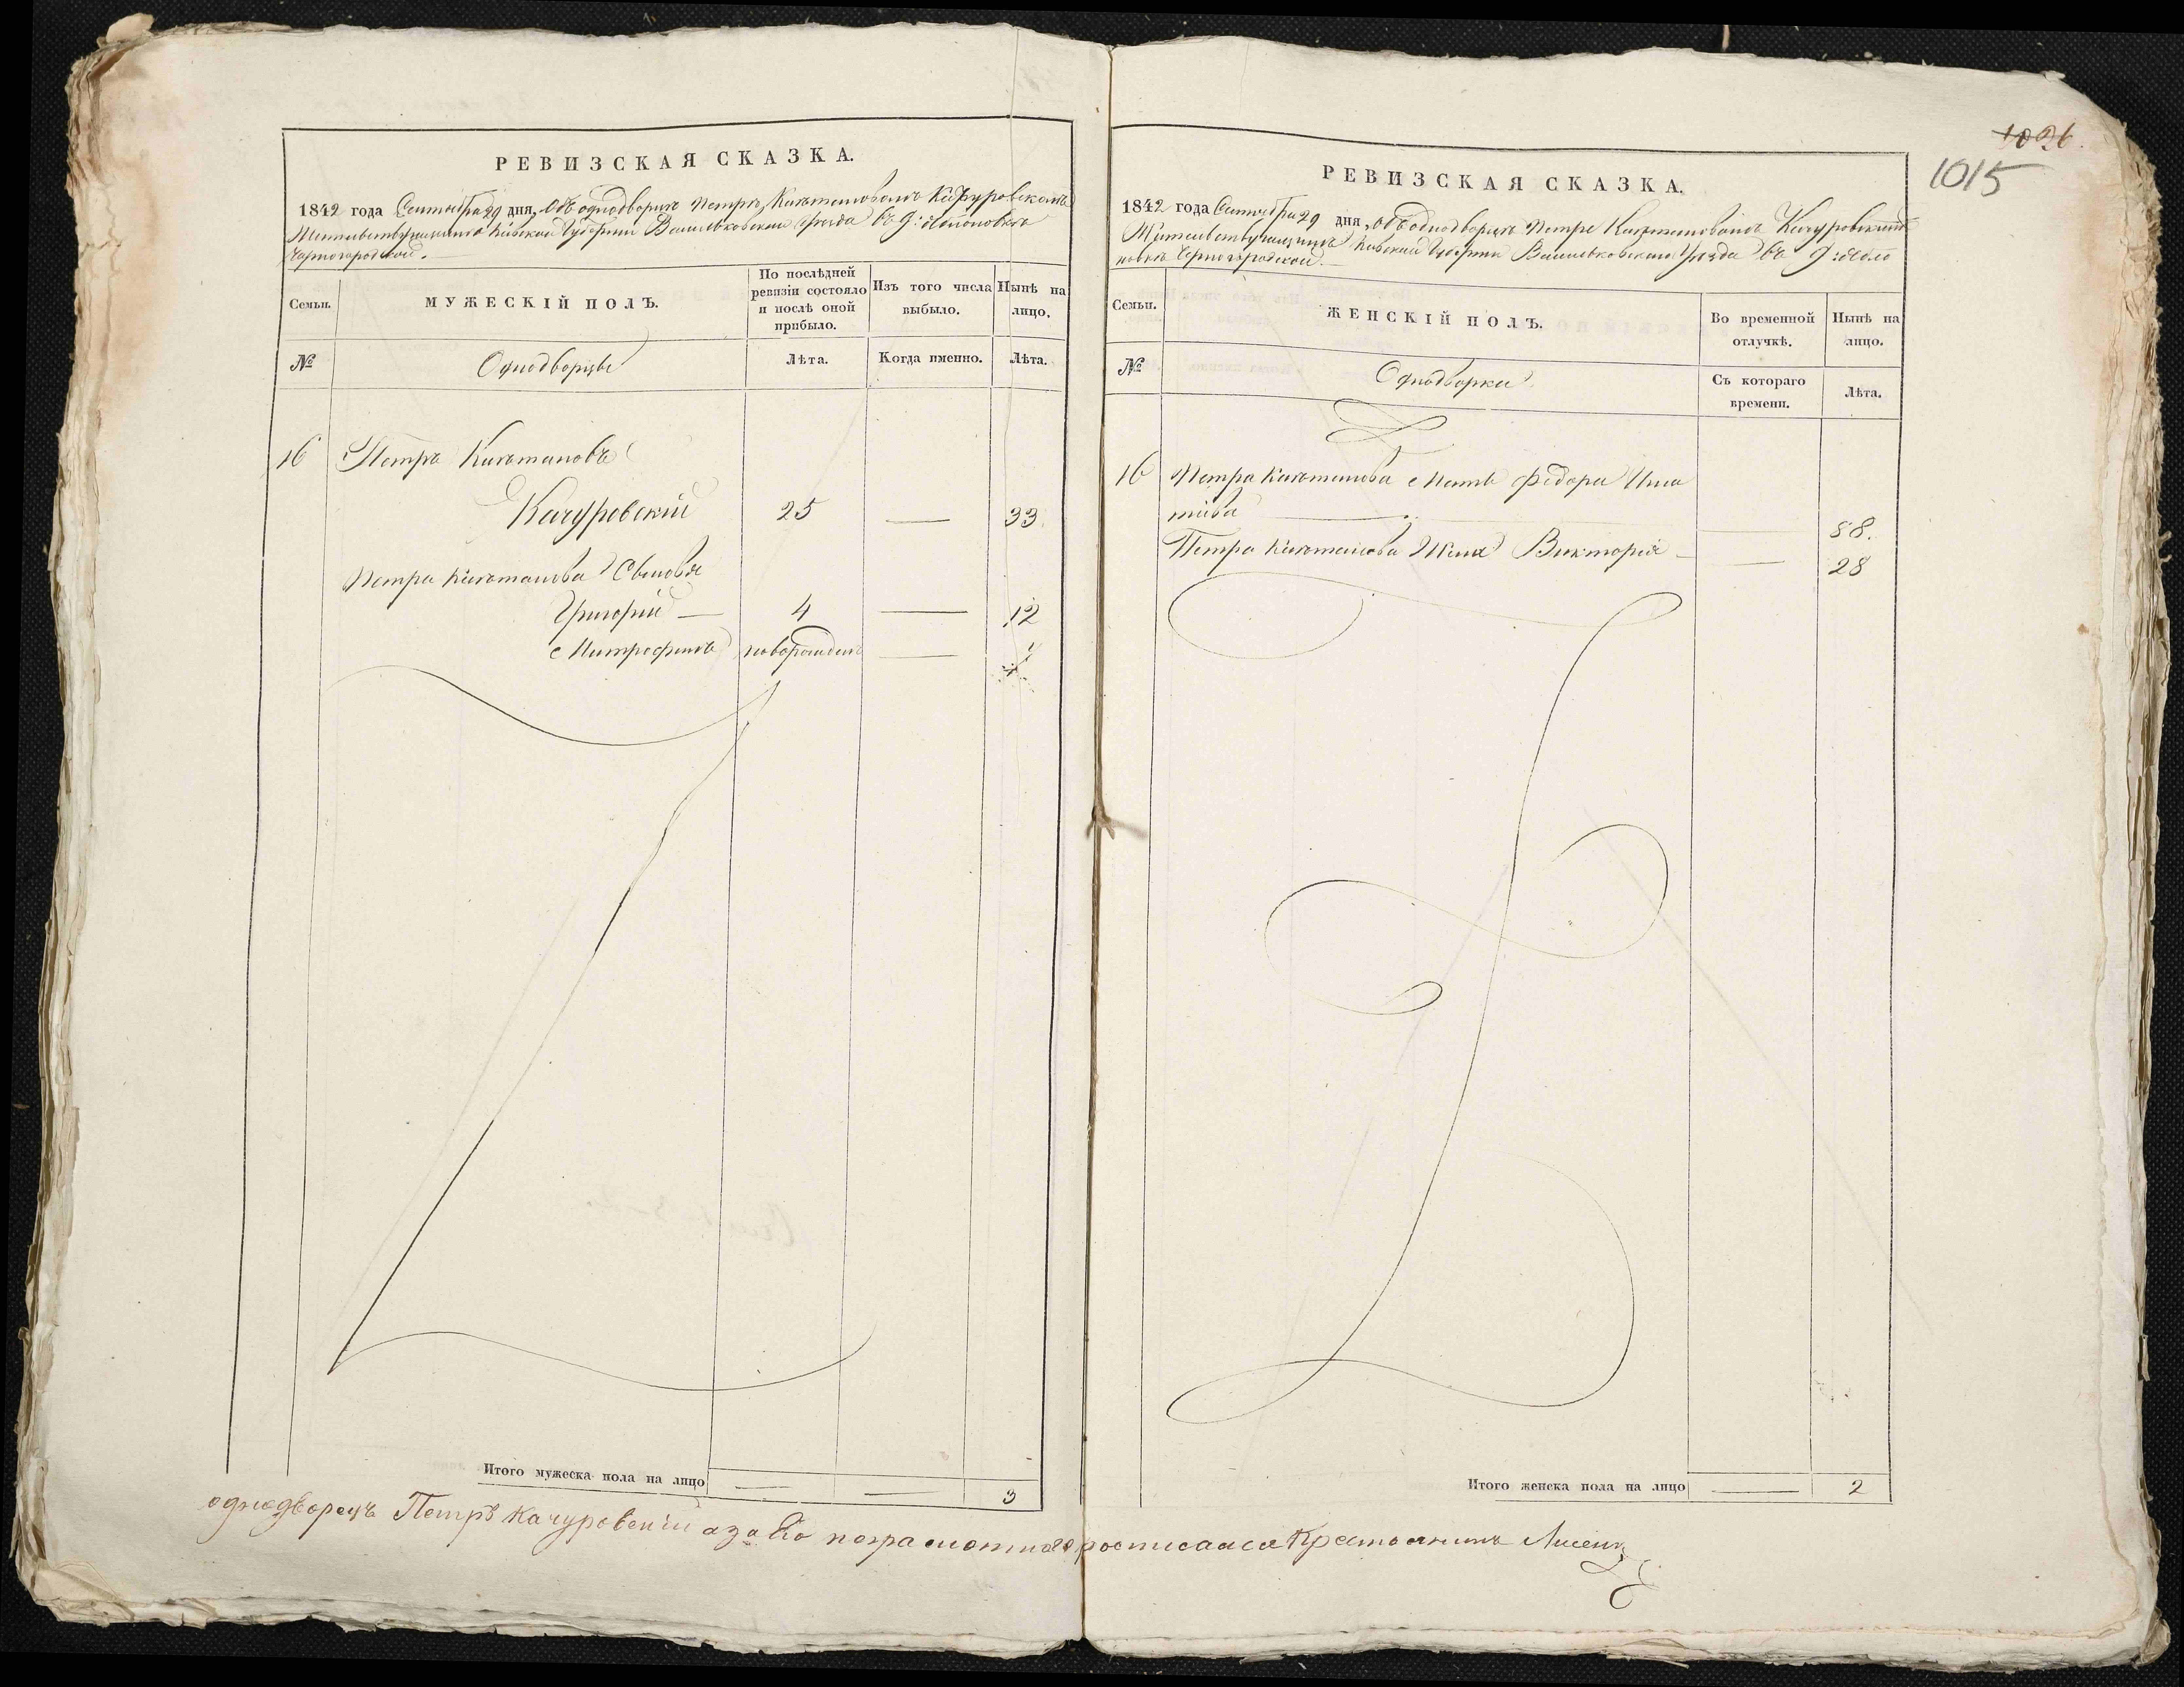 РЕВИЗСКАЯ СКАЗКА.
1842 года Сентября 29 дня, Объ однодворцѣ Петрѣ Каэтановомъ Качуровскомъ
Жительствующимъ Кіевской Губерніи Васильковскаго Уѣзда въ д:
Черногородской.
Семьи.
МУЖЕСКІЙ ПОЛЪ.
По послѣдней ревизіи состояло и послѣ оной прибыло.
Изъ того числа выбыло.
Нынѣ на лицо.
№
Однодворцы
Лѣта.
Когда именно.
Лѣта.
16 Петръ Каэтановъ
Качуровскій 25 — 33
Петра Каэтанова Сыновья
Григорій — 4 — 12
Митрофанъ новорожден —
Итого мужеска пола на лицо — — 3
1026.
1015
РЕВИЗСКАЯ СКАЗКА.
1842 года Сентября 29 дня, объ однодворцѣ Петрѣ Каэтановомъ Качуровскомъ
Жительствующимъ Кіевской Губерніи Васильковскаго Уѣзда въ д:
Черногородской.
Семьи.
ЖЕНСКІЙ ПОЛЪ.
Во временной отлучкѣ.
Нынѣ на лицо.
№
Однодворки
Съ котораго времени.
Лѣта.
16 Петра Каэтанова Мать Федора Игна
тіева — 88.
Петра Каэтанова Жена Викторія — — 28
Итого женска пола на лицо — 2
однодворецъ Петръ Качуровскій а за его неграмотного росписался Крестьянинъ